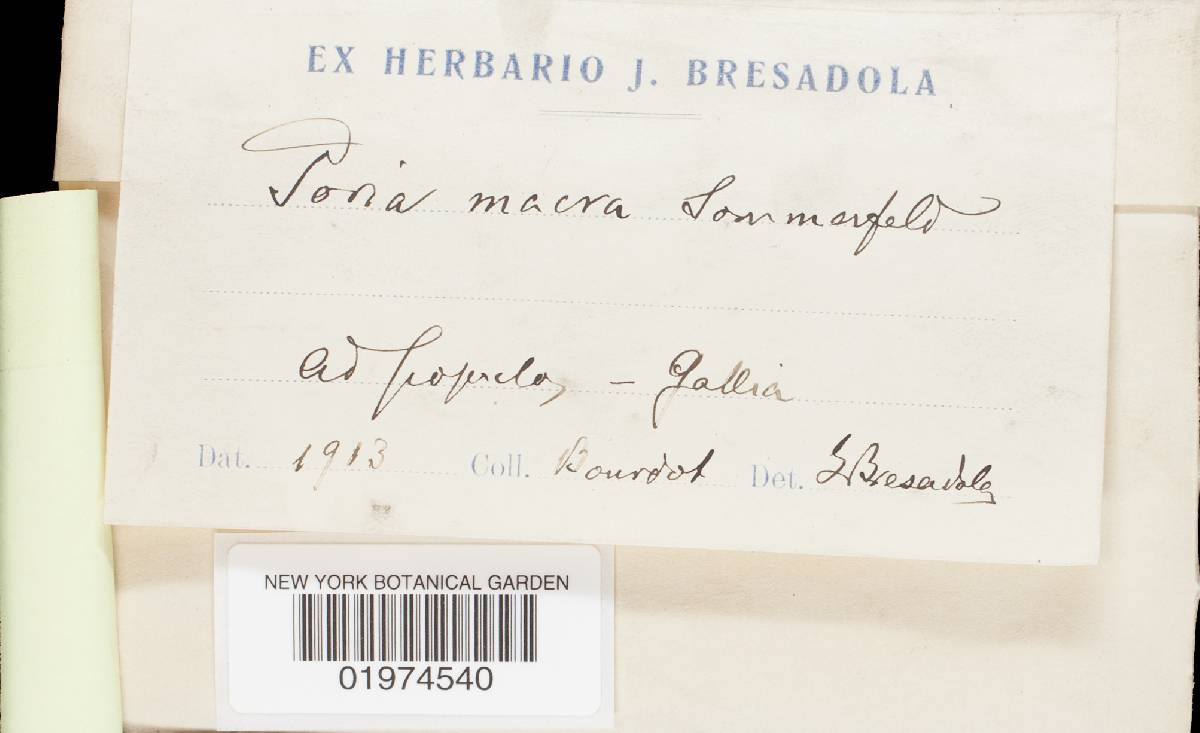 EX HERBARIO J. BRESADOLA
Poria macra Sommerfeld
ad populos – Gallia
Dat. 1913 Coll. Bourdot Det. JBresadola
NEW YORK BOTANICAL GARDEN
01974540